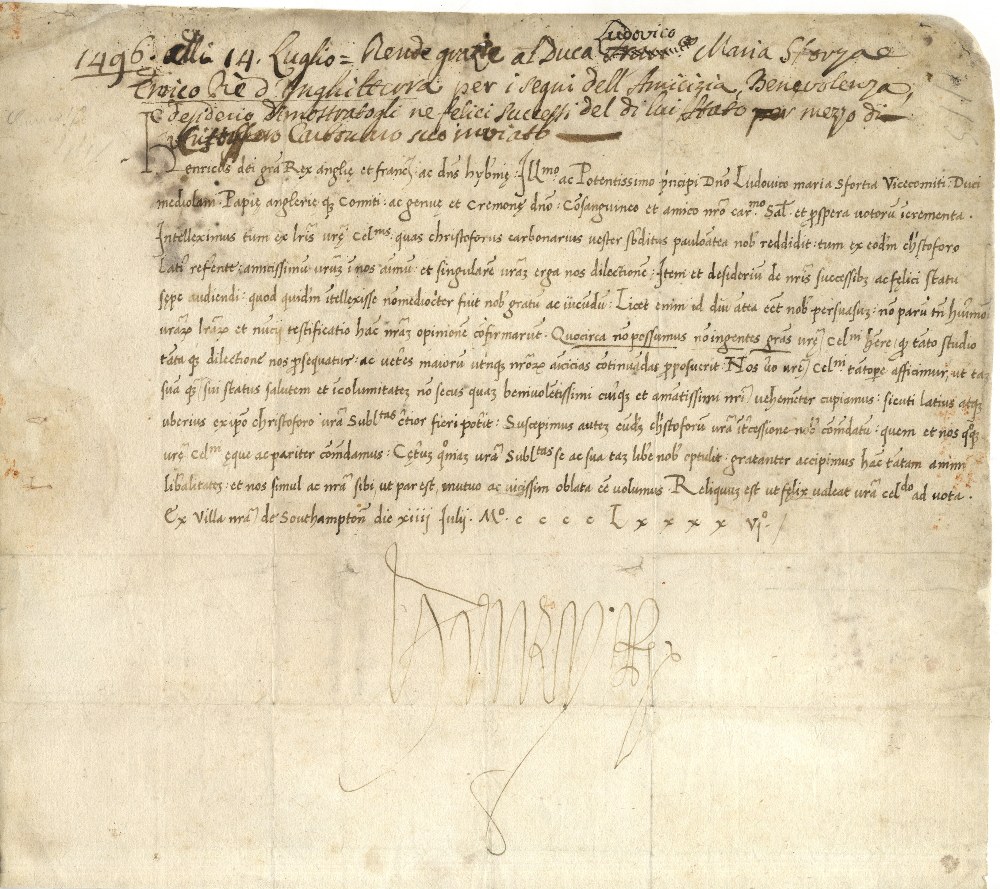 1496. alli 14. Luglio = Rende grazie al Duca Ludovico Maria Sforza
Enrico Rè d'Inghilterra per i segni dell'Amicizia, Benevolenza,
E desiderio dimostratogli ne felici successi del di lui Stato per mezo di
Cristofforo Carbonaro suo inviato
Henricus dei gra Rex anglię et franc: ac dns hybnię: Illmo ac Potentissimo pncipi Dno Ludovico maria Sfortia Vicecomiti: Duci
mediolani. Papie anglerie qz Comiti: ac genuę et Cremonę dno: Cosanguineo et amico nro carmo Sal et pspera votoru icrementa.
Intelleximus tum ex lris vrę Celnis. quas christoforus carbonarius vester sbditus pauloatea nob reddidit: tum ex eodm christoforo
latiˀ referente: amicissimu vruz i nos aimu: et singulare vraz erga nos dilectione: Item et desideriu de nris successibz ac felici statu
sępe audiendi: quod quidm itellexisse no mediocter fuit nob gratu ac iucundu: Licet enim id diu atea eet nob persuasuz: no paru tn huiusmoi
vrarz lrarz et nucij testificatio hac nraz opinione cofirmarut. Quocirca no possumus no ingentes gras vrę Celni here: qȝ tato studio
tata qȝ dilectione nos psequatur: ac veteres maioru utriusqȝ nrorz amicicias cotinuadas pposuerit. Nos vo vrę Celni tatopere afficimur, ut taz
sua qȝ sui status salutem et icolumitatez no secus quaz benivoletissimi cuiusqȝ et amatissimi nri vehemeter cupiamus: sicuti latius atqȝ
uberius ex ipo christoforo vra Subltas ctior fieri poterit: Suscepimus autez eundz christoforu vra itcessione nob comdatu: quem et nos qoqȝ
vrę Celni ęque ac pariter comdamus: Cęteruz qmaz vra Subltas se ac sua taz libe nob optulit: gratanter accipimus hac tatam animi
libalitatez: et nos simul ac nra sibi, ut par est, mutuo ac vicissim oblata ee volumus. Reliquuz est ut fęlix valeat vra celdo ad vota.
Ex Villa nra de Southampton die xiiij Julij. Mo. c c c c L x x x x vjo.
Henry R